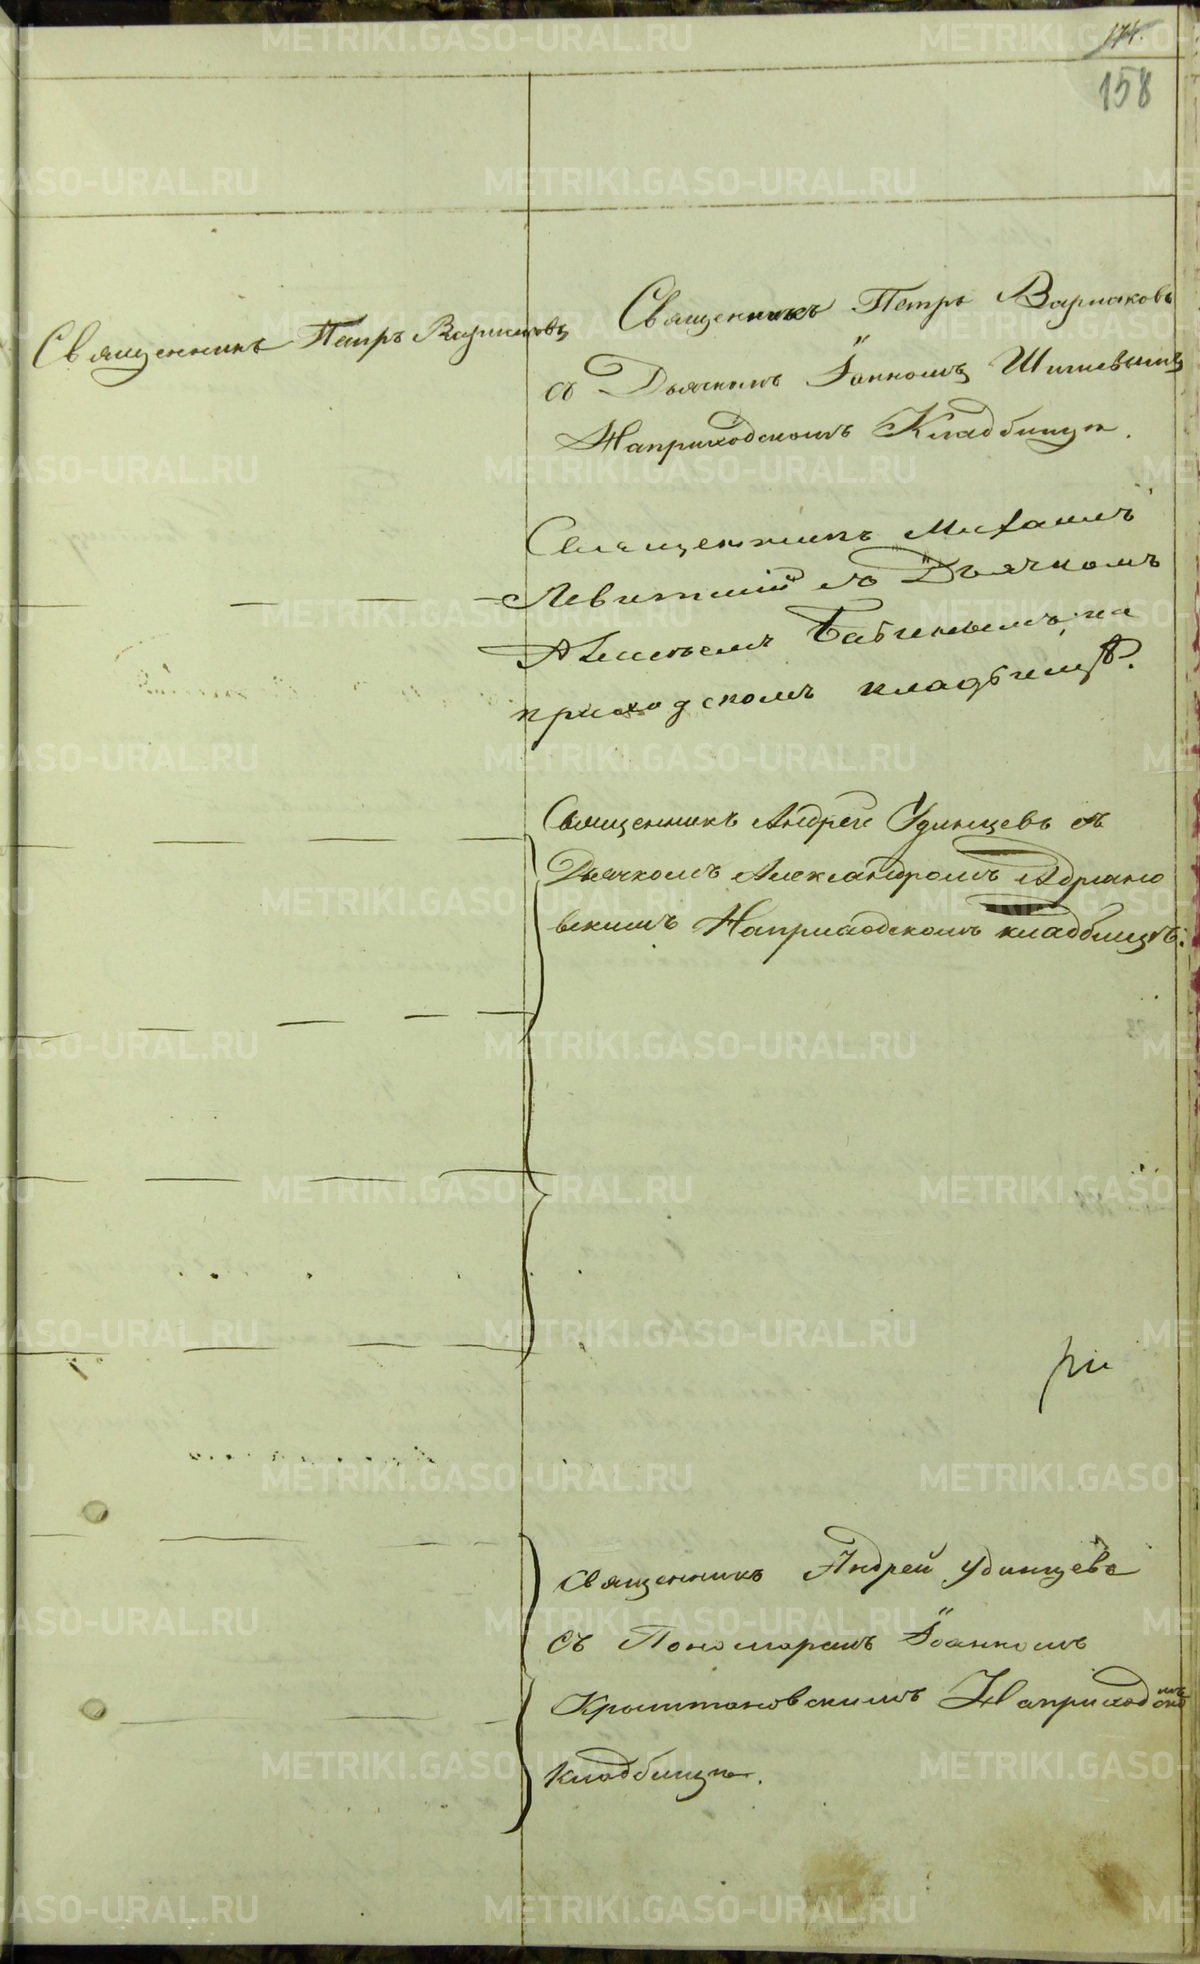 174.
158
Священникъ Петръ Варнаковъ
Священникъ Петръ Варнаковъ
съ Дьячкомъ Іоанномъ
На приходскомъ Кладбищѣ.
Священникъ Михаилъ
Левитскій съ Дьячкомъ
Алексѣемъ Бабинымъ, на
приходскомъ кладбищѣ.
Священникъ Андрей Удинцевъ съ
Дьячкомъ Александромъ Адріано
вскимъ На приходскомъ кладбищѣ.
Священникъ Андрей Удинцевъ
съ Пономаремъ Іоанномъ
На приходскомъ
Кладбищѣ.
METRIKI.GASO-URAL.RU